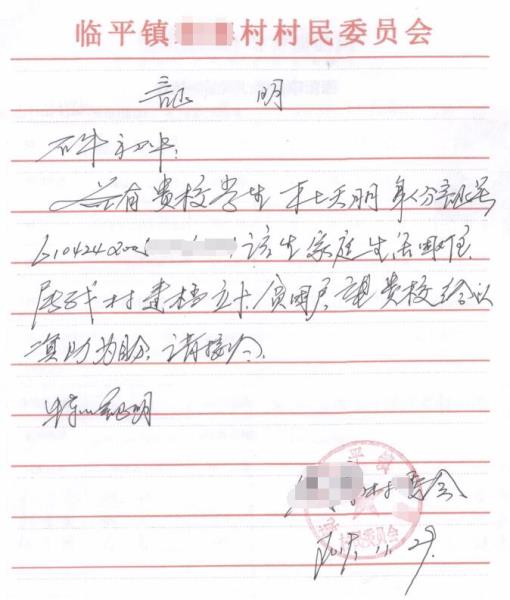 临平镇 村村民委员会
证 明
石牛初中:
兹有贵校学生 杜天朋 身份证号
610424200 该生家庭生活困难,
属我村建档立卡贫困户,望贵校给以
资助为盼,请接洽.
特此证明
村委会
2017.11.29
临平镇 村民委员会